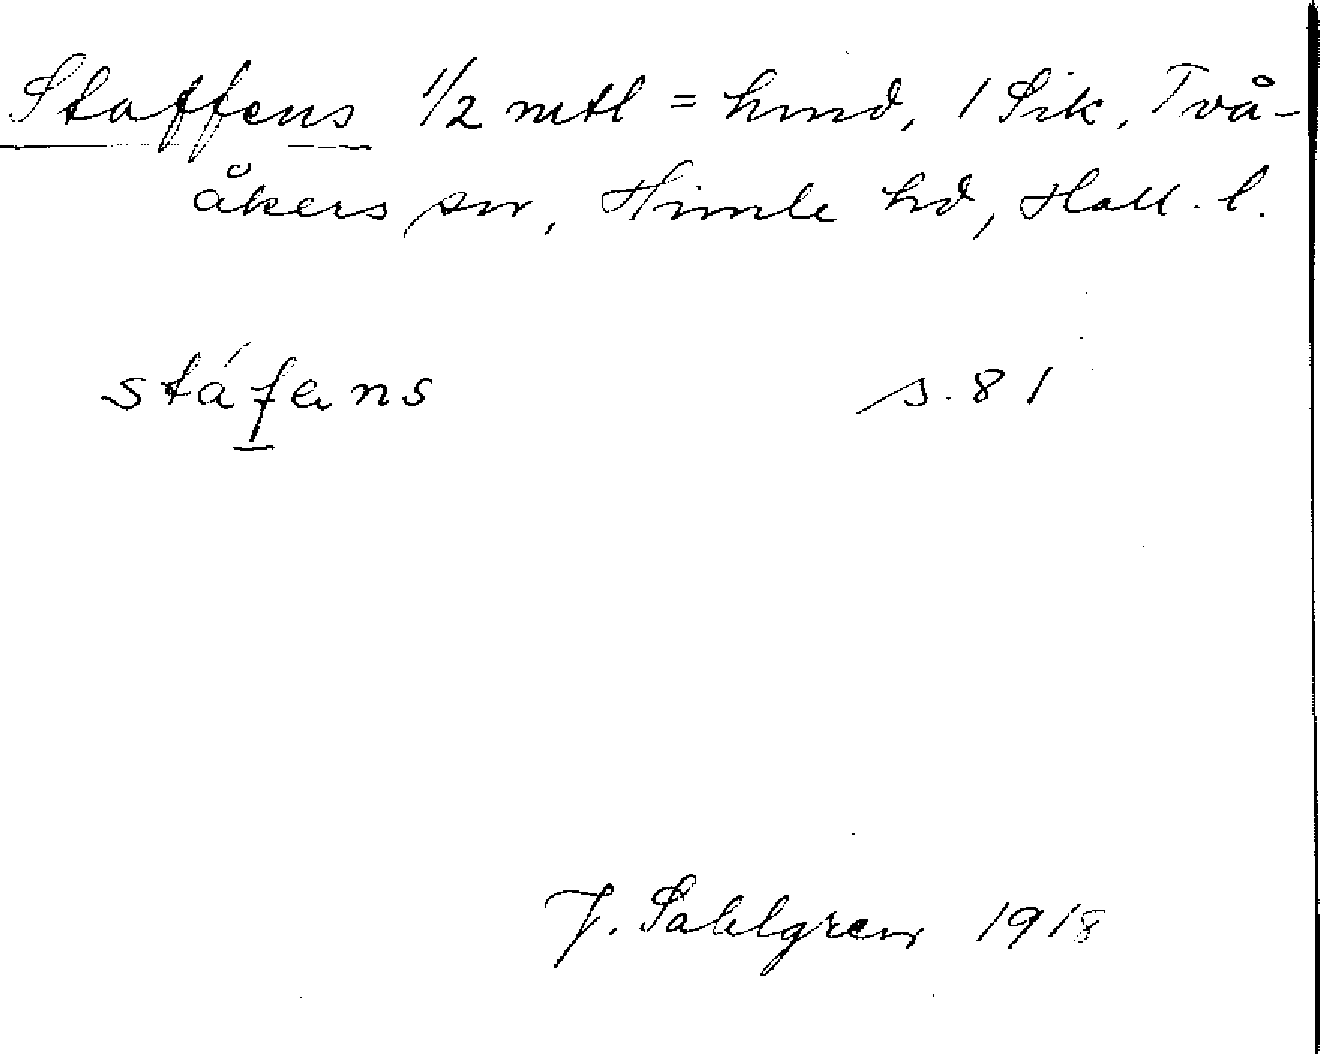 Staffens 1/2 mtl = hmd, 1 Sik, Två-
åkers sn, Himle hd, Hall. l.
stáfans s. 81
J. Sahlgren 1918